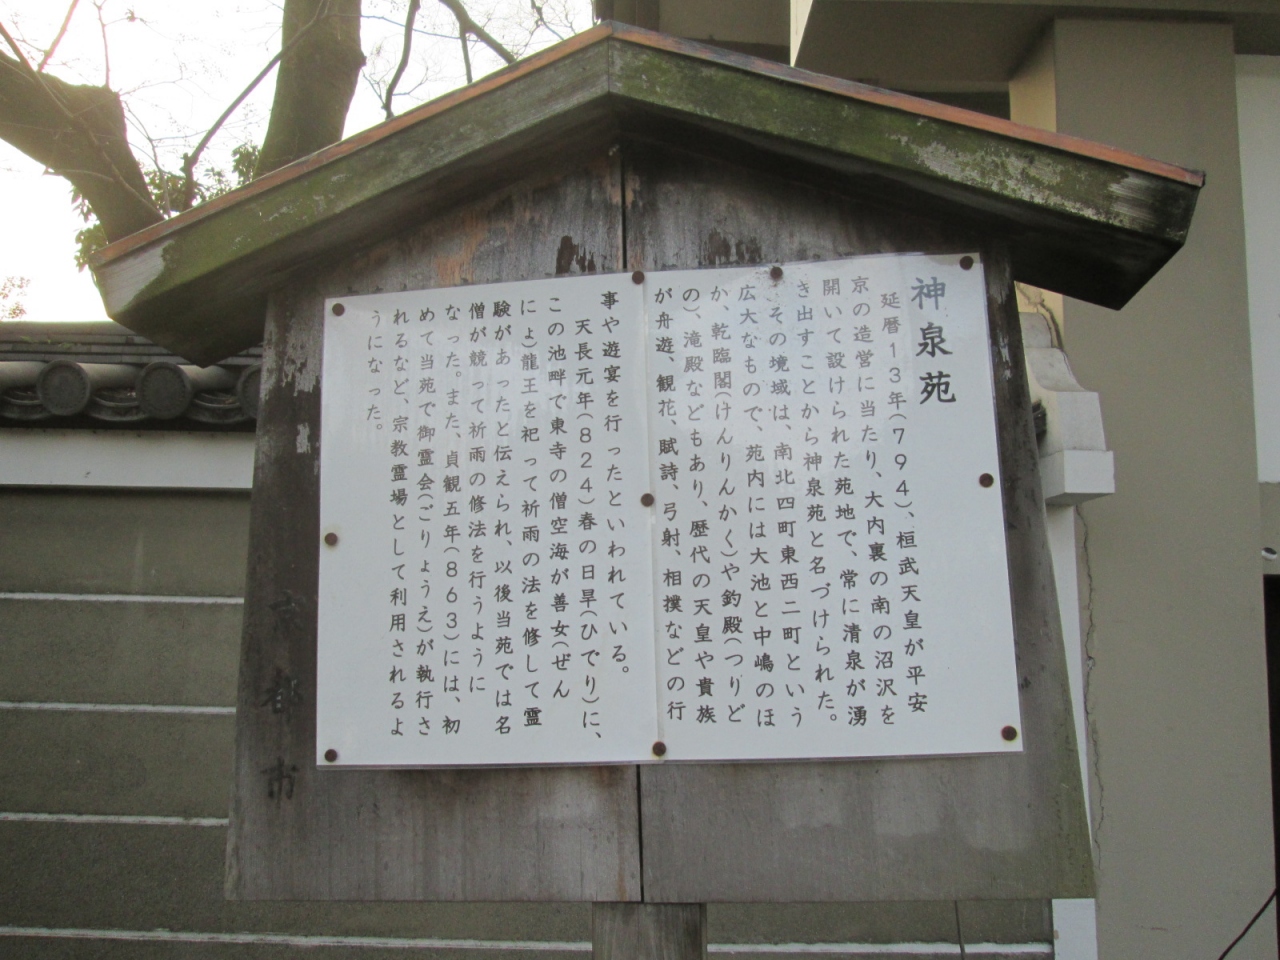 神泉苑
延暦13年(794)、桓武天皇が平安
京の造営に当たり、大内裏の南の沼沢を
開いて設けられた苑地で、常に清泉が湧
き出すことから神泉苑と名づけられた。
その境域は、南北四町東西二町という
広大なもので、苑内には大池と中嶋のほ
か、乾臨閣(けんりんかく)や釣殿(つりど
の)、滝殿などもあり、歴代の天皇や貴族
が舟遊、観花、賦詩、弓射、相撲などの行
事や遊宴を行ったといわれている。
天長元年(824)春の日旱(ひでり)に、
この池畔で東寺の僧空海が善女(ぜん
にょ)龍王を祀って祈雨の法を修して霊
験があったと伝えられ、以後当苑では名
僧が競って祈雨の修法を行うように
なった。また、貞観五年(863)には、初
めて当苑で御霊会(ごりょうえ)が執行さ
れるなど、宗教霊場として利用されるよ
うになった。
京都市